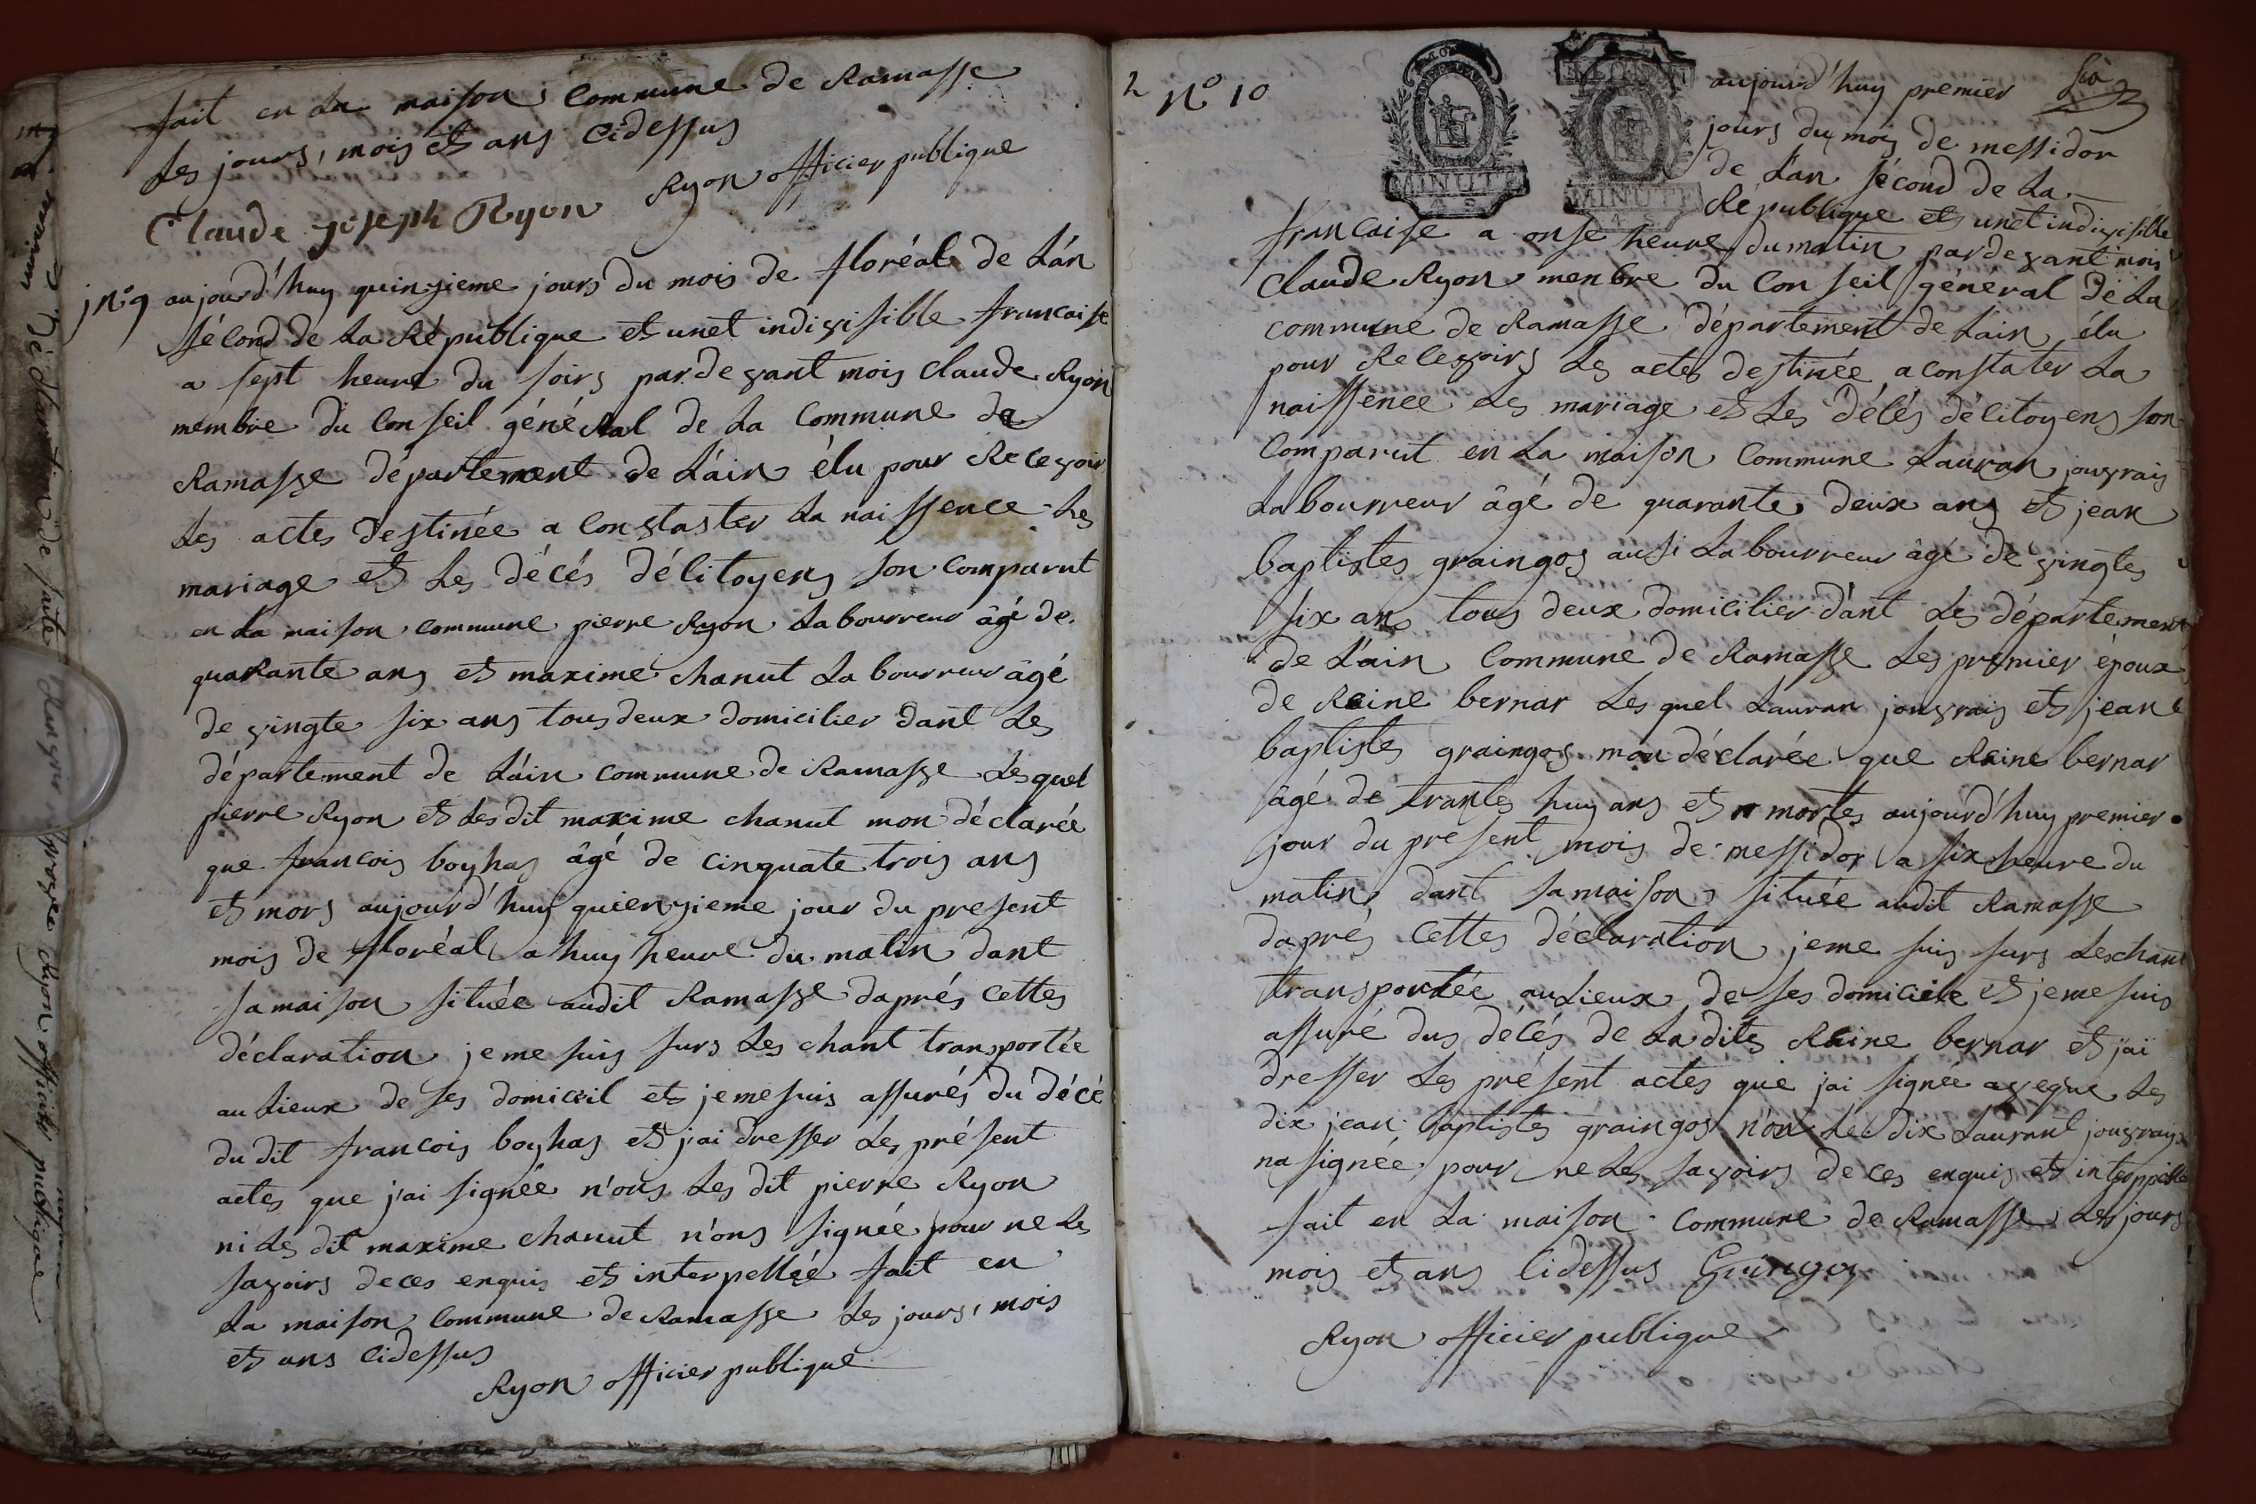 fait en La maison Commune de Ramasse
Les jours, mois et ans Cidessus
Ryon officier publique
Claude joseph Ryon
N° 9 aujourd'huy quinzieme jours du mois de floréal de L'án
sécond de La République et unet indivisible francaisse
a sept heure du soirs pardevant mois Claude Ryon
membre du Conseil général de La Commune de
Ramasse département de L'ain élu pour Recevoir
Les actes destinée a Constaster La naissence Les
mariage et Les décés décitoyens son comparut
en La maison commune pierre Ryon Labourreur âgé de
quarante ans et maxime chanut Labourreur âgé
de vingte six ans tous deux domicilier dant Les
département de L'áin commune de Ramasse Lesquel
pierre Ryon et Lesdit maxime chanut mon déclarée
que francois boyhas âgé de cinquate trois ans
et mors aujourd'huy quienzieme jour du present
mois de floréal a huy heure du matin dant
sa maison située audit Ramasse daprés cettes
déclaration jeme suis surs Les chant transportée
au Lieux de ses domiceil et jemesuis assurés du décé
du dit francois boyhas et j'ai dresser Les présent
actes que j'ai signée n'ous Les dit pierre Ryon
ni Les dit maxime chanut n'ons signée pour ne Le
savoirs deces enquis et interpellée fait en
La maison Commune de Ramasse Les jours, mois
et ans Cidessus
Ryon officier publique
2 N° 10
MINUTE
MINUTE
aujourd'huy premier
jours du mois de messidor
de L'an sécond de La
République et unet indivisible
francaise a onse heure du matin pardevant mois
Claude Ryon menbre du Conseil général de La
commune de Ramasse département de Lain élu
pour Recevoirs Les actes destinée a constater La
naissence Les mariage et Les décés décitoyens son
Comparut en La maison Commune Lauran jouvrais
Labourreur âgé de quarante deux ans et jean
baptistes graingos aussi Labourreur âgé de vingtes
six ans tous deux domicilier dant Les département
de L'ain Commune de Ramasse Les premier époux
de Reine bernar Lesquel Lauran jouvrais et jean
baptistes graingos mon déclarée que Reine bernar
âgé de trantes huy ans et mortes aujourd'huy premier
jour du present mois de messidor a six heure du
matin dant sa maison située audit Ramasse
daprés cettes déclaration jeme suis surs Leschant
transportée au Lieux de ses domicile et jemesuis
assuré dus décés de Ladites Reine bernar et j'ai
dresser Les présent actes que jai signée aveque Les
dix jean baptistes graingos n'on Le dix Laurant jouvrays
na signée pour ne Les savoirs de ces enquis et interppellée
fait en La maison Commune de Ramasse Les jours
mois et ans Cidessus Guingos
Ryon officier publique